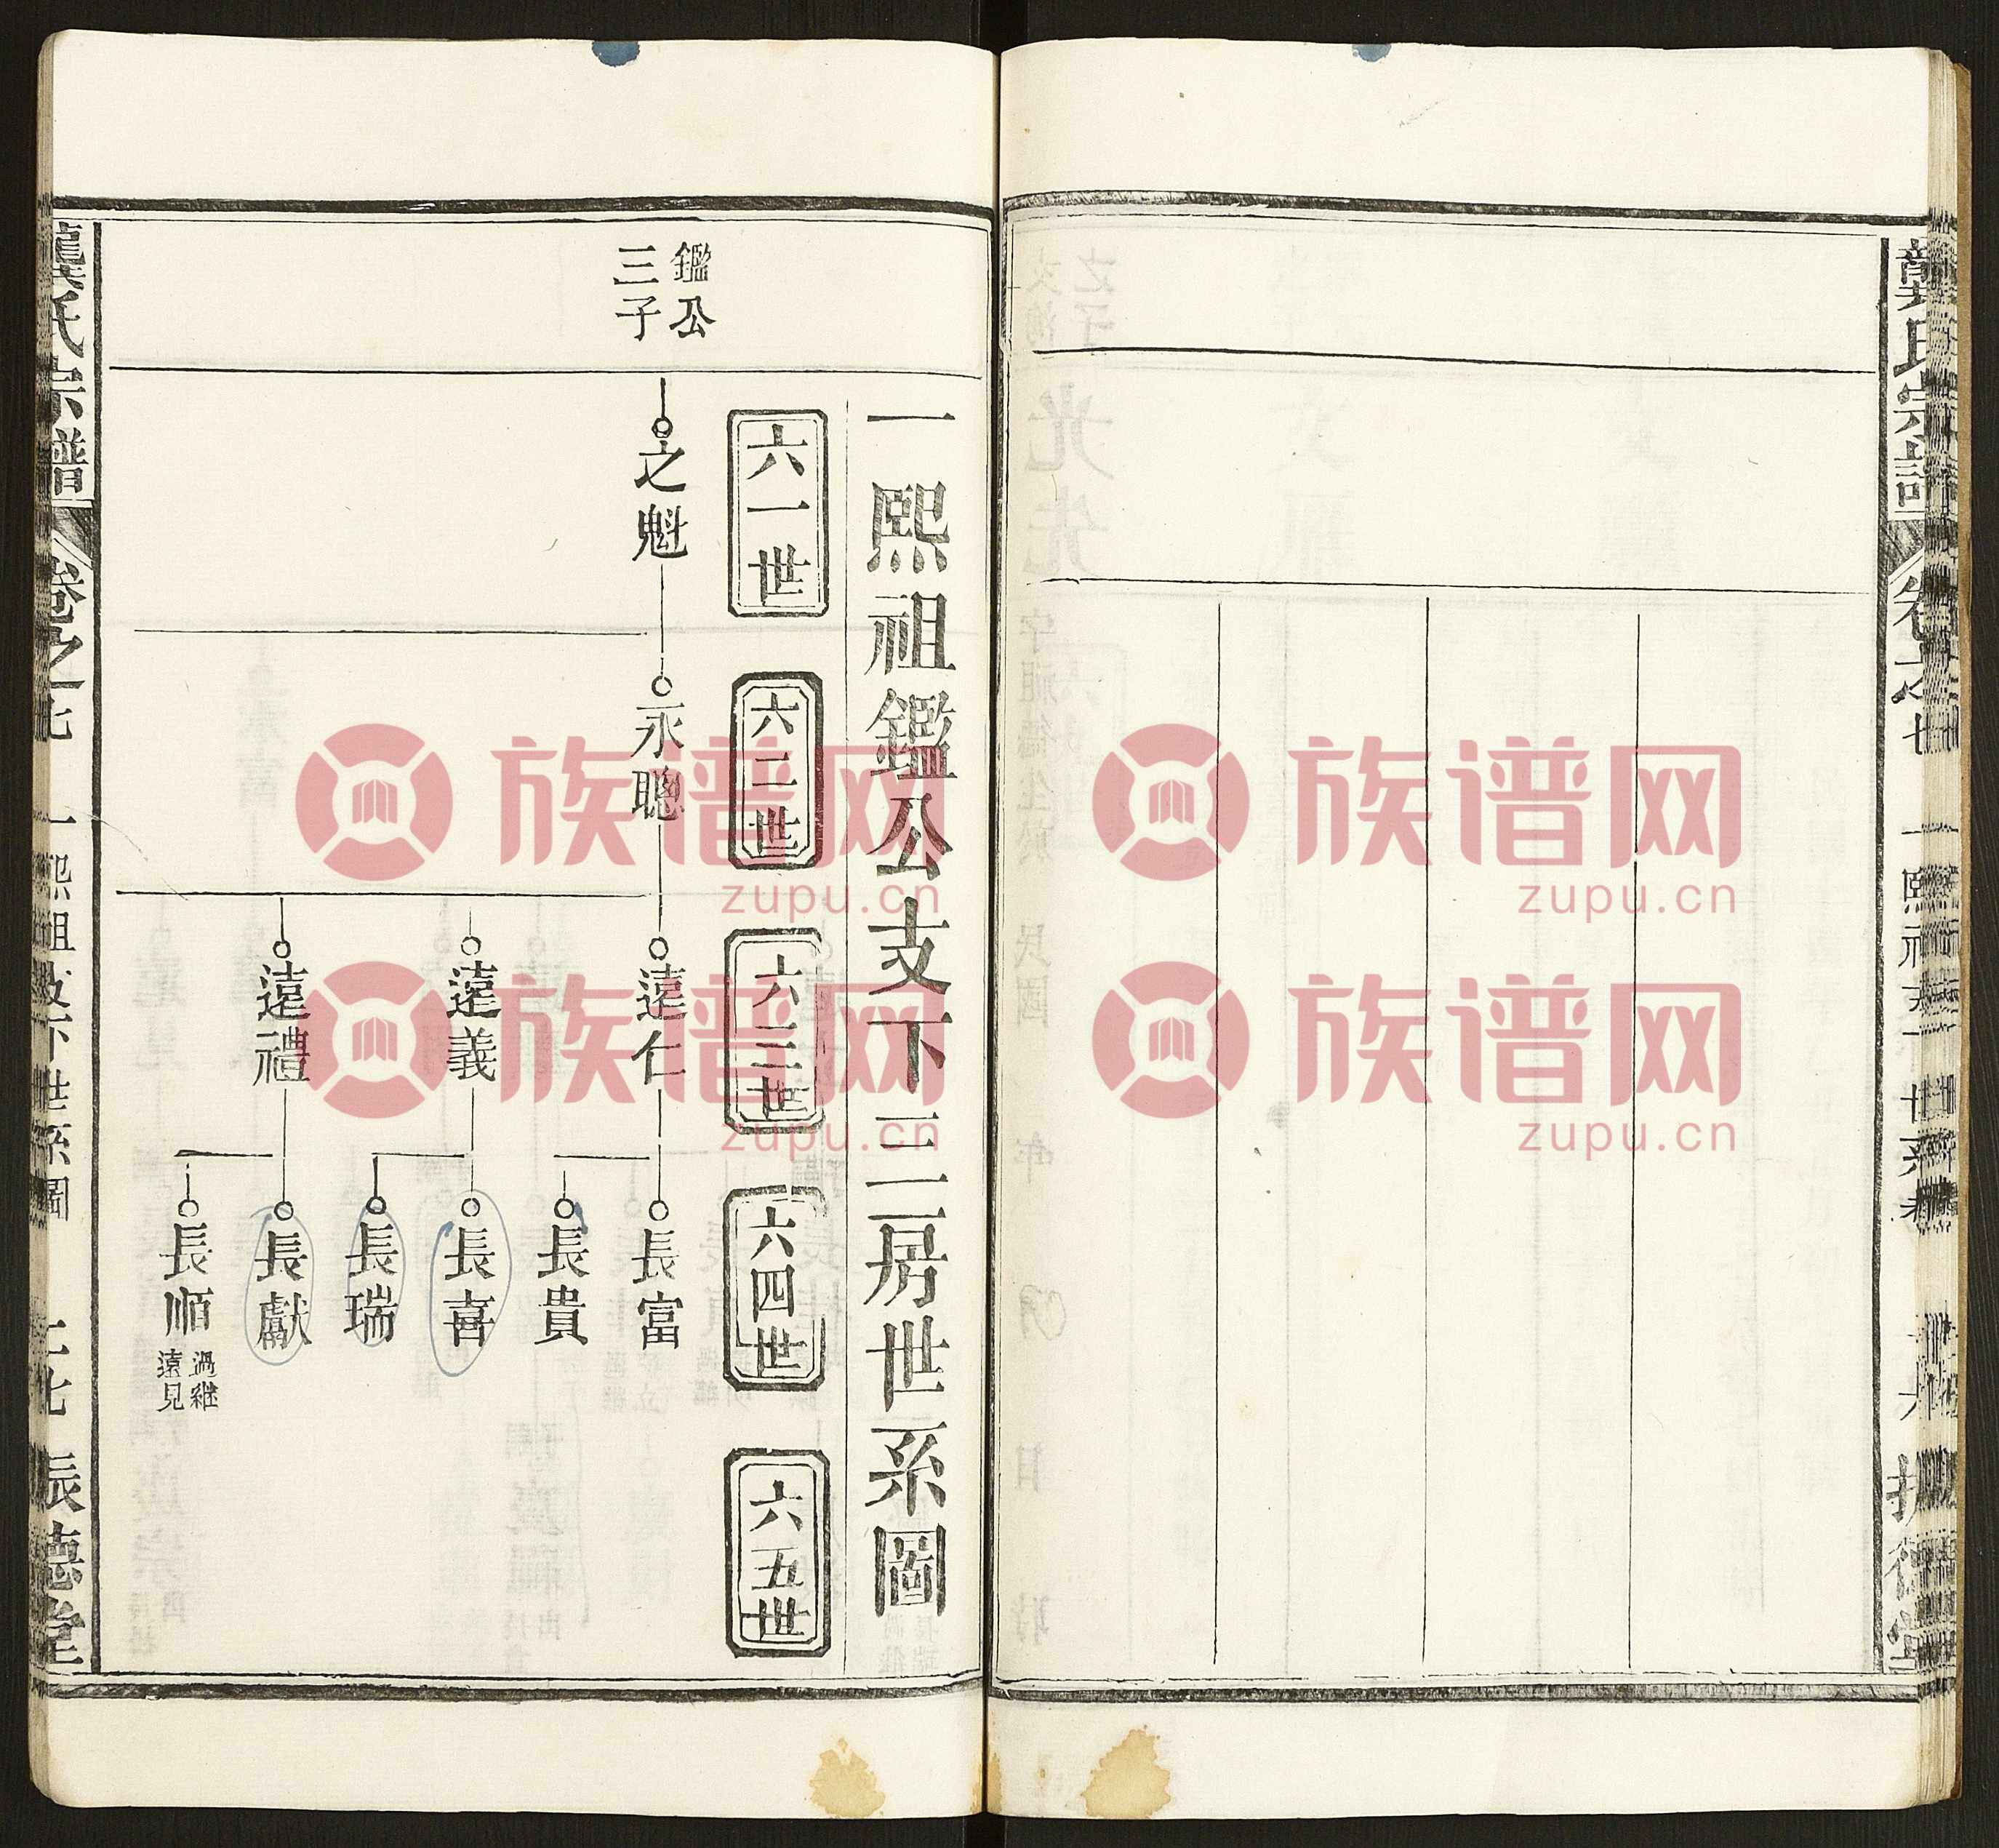 龔氏宗譜
卷之七 一熙祖支下世系
振德堂
一熙祖鑑公支下三房世系圖
六一世
六二世
六三世
六四世
六五世
鑑公
三子
之魁
永聰
遠仁
遠義
遠禮
長富
長貴
長喜
長瑞
長獻
長順
過繼
遠見
龔氏宗譜
卷之七 一熙祖支下世系圖
振德堂
族谱网
zupu.cn
族谱网
zupu.cn
族谱网
zupu.cn
族谱网
zupu.cn